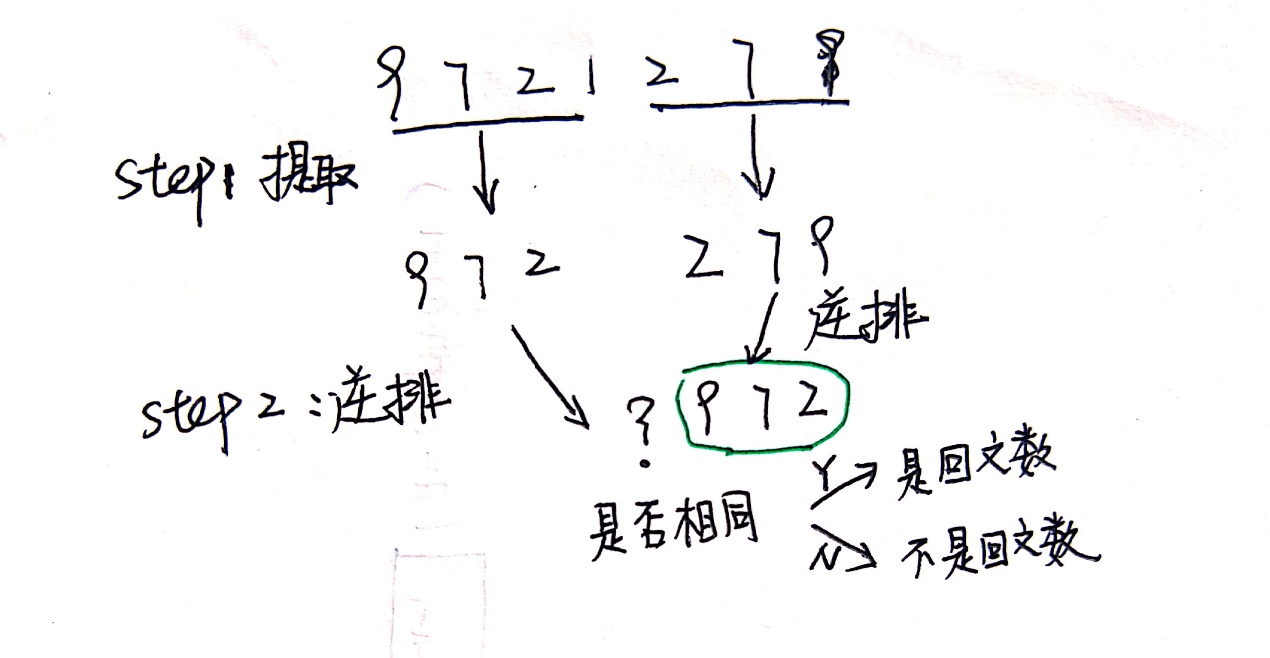 9 7 2 1 2 7 9
step1 提取
9 7 2 2 7 9
逆排
step 2 : 逆排
? 9 7 2
是否相同
Y 是回文数
N 不是回文数